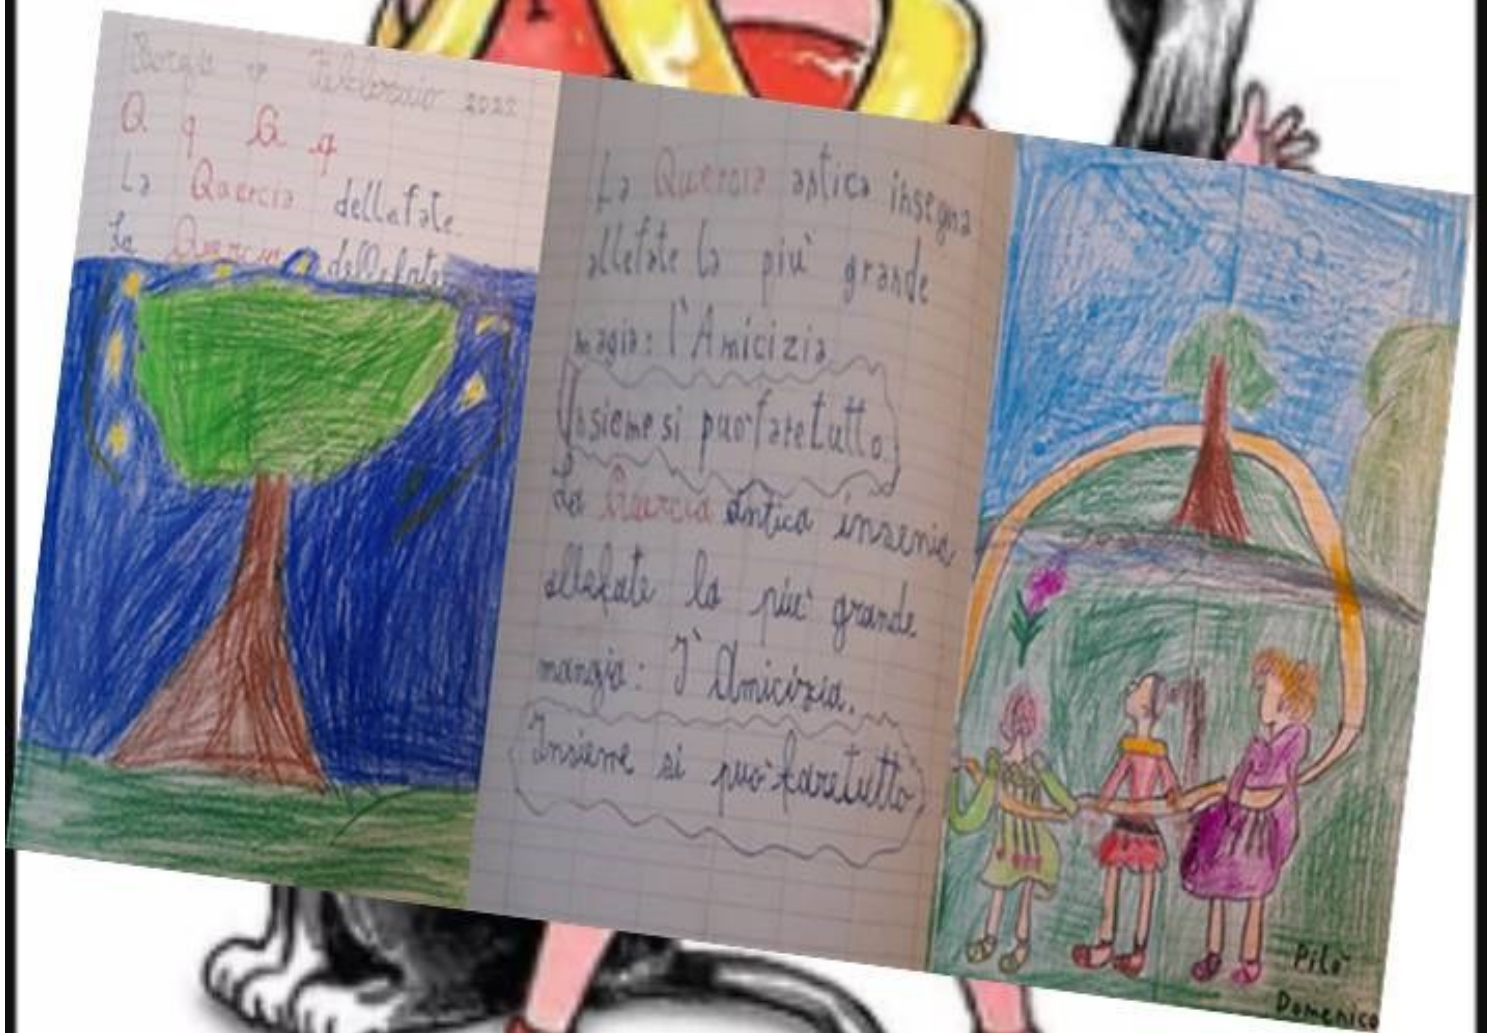 Febbraio 2022
Q q Q q
La Quercia dellefate.
La Quercia dellefate
La Quercia antica insegna
allefate la più grande
magia: l'Amicizia
Insieme si può fare tutto.
La Quercia antica insenia
allefate la più grande
mangia: l'Amicizia.
Insieme si può faretutto
Pilò
Domenico